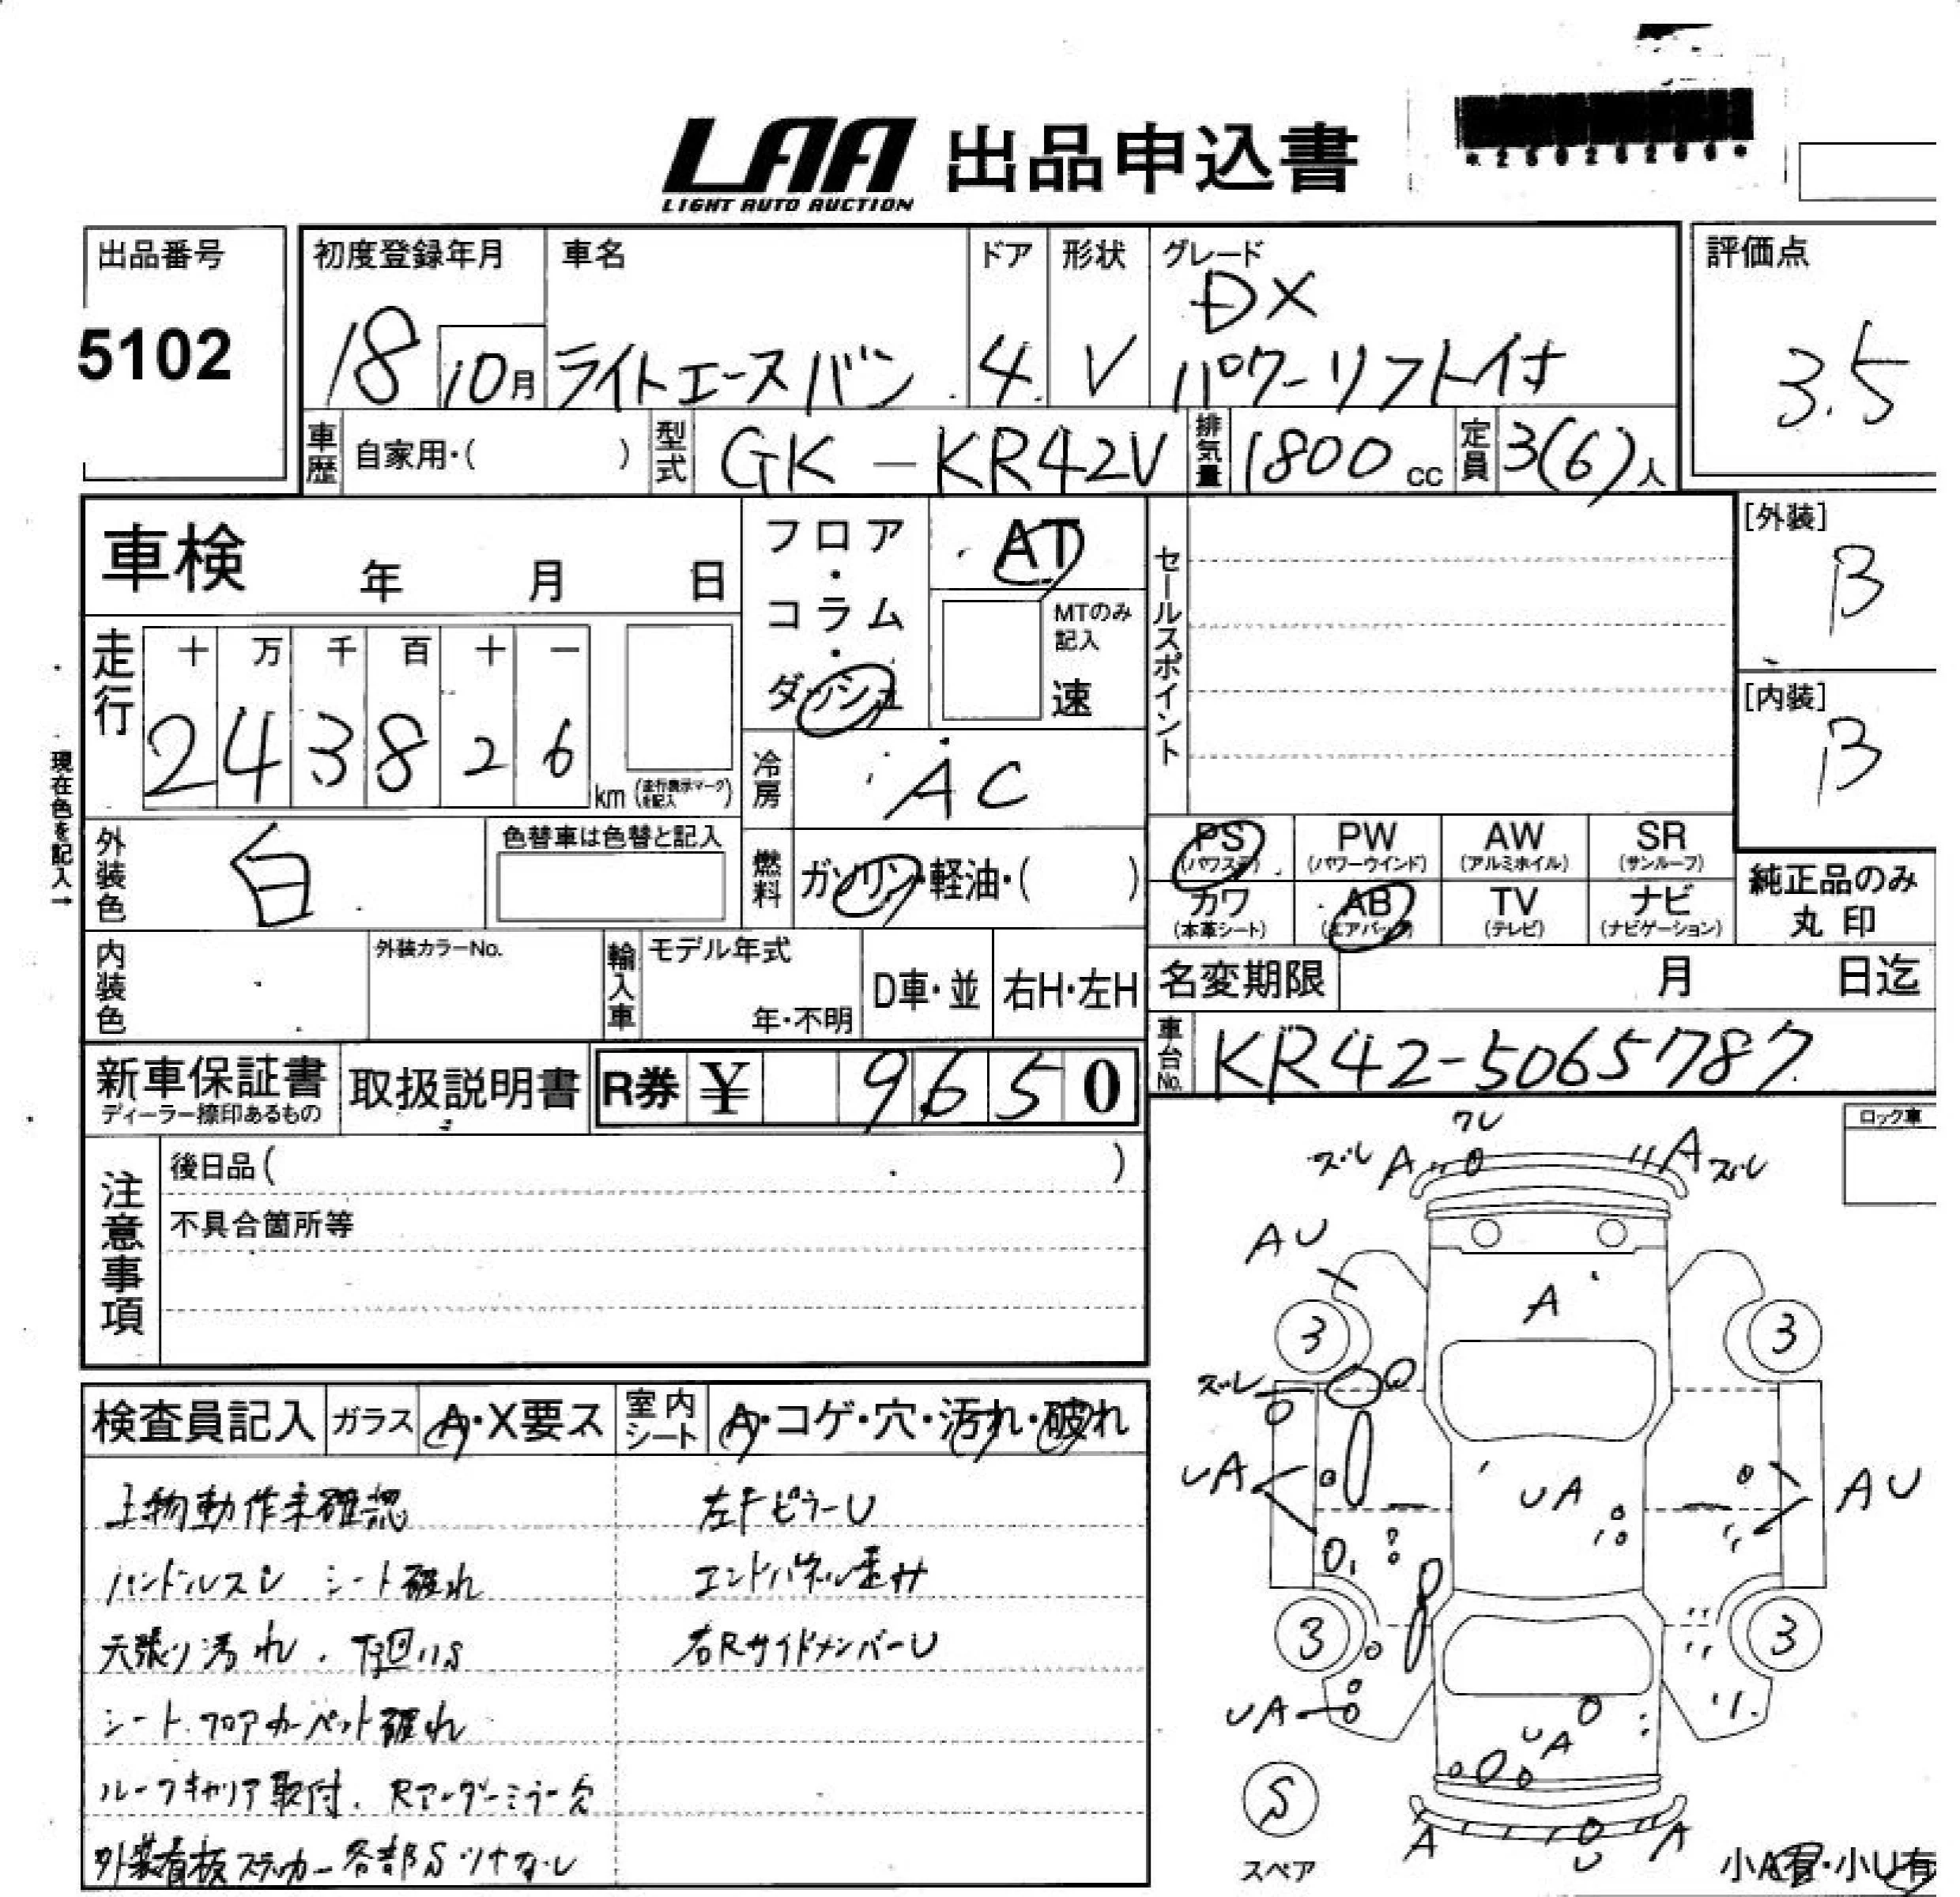 LAA 出品申込書
LIGHT AUTO AUCTION
出品番号
5102
初度登録年月
18 10月
車名
ライトエースバン
ドア
4
形状
V
グレード
DX
パワーリフト付
評価点
3.5
車歴 自家用・( )
型式 GK-KR42V
排気量 1800 cc
定員 3(6)人
車検 年 月 日
フロア・コラム・ダッシュ
AT
MTのみ記入
速
セールスポイント
[外装]
B
[内装]
B
走行
十 万 千 百 十 一
2 4 3 8 2 6 km (走行表示マークを記入)
現在色を記入→
冷房 AC
外装色 白
色替車は色替と記入
燃料 ガソリン・軽油・( )
PS (パワステ)
PW (パワーウインド)
AW (アルミホイル)
SR (サンルーフ)
カワ (本革シート)
AB (エアバッグ)
TV (テレビ)
ナビ (ナビゲーション)
純正品のみ
丸印
内装色
外装カラーNo.
輸入車
モデル年式
年・不明
D車・並
右H・左H
名変期限 月 日迄
車台No. KR42-5065787
新車保証書
ディーラー捺印あるもの
取扱説明書
R券 ¥ 9650
注意事項
後日品( )
不具合箇所等
ロック車
ワレ
ズレ A A ズレ
AU
A
3 3
ズレ
UA UA AU
3 3
UA
UA
S
スペア
A U A
小A有・小U有
検査員記入
ガラス A・X要ス
室内シート A・コゲ・穴・汚れ・破れ
上物動作未確認
ハンドルスレ シート破れ
天張り汚れ、下回りS
シート、フロアカーペット破れ
ルーフキャリア取付、Rアンダーミラー欠
外装看板ステッカー各部S
左Fピラー U
エンドパネル歪サ
右RサイドメンバーU